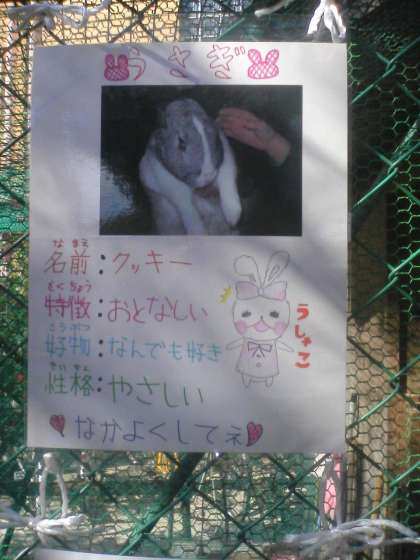 うさぎ
なまえ
名前：クッキー
とくちょう
特徴：おとなしい
こうぶつ
好物：なんでも好き
せいかく
性格：やさしい
うしゃこ
なかよくしてネ